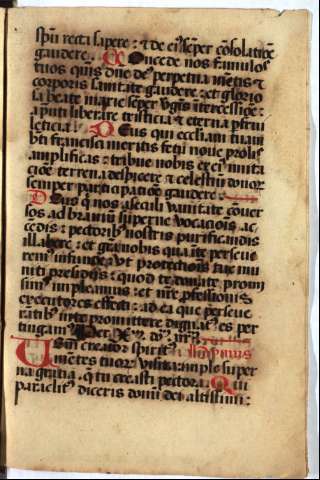 spm recta sapere : et de ei semper cōsolatiōe
gaudere. Concede nos famulos
tuos qus dne ds perpetua mētis et
corporis sanitate gaudere : et glorio
sa beate marie semper vgis intercessioe :
a pnti liberari tristicia et eterna pfrui
leticia. Deus qui eccliam tuam
bti francisci meritis fetu noue prolis
amplificas : tribue nobis ex ei imita
cioe terrena despicere et celestium donor
semper participatiōe gaudere.
Deus q nos a seculi vanitate cōuer
sos ad brauium superne vocaciōis ac
cēdis : pectoribus nostris purificandis
illabere : et grām nobis qua in te perseue
remus infunde : vt protectiōis tue mu
niti presidijs : quod te donāte promi
simus impleamus : et nre pfessionis
executores effecti : ad ea que perseue
rātibus in te promittere dignatus es per
tingam
Veni creator spiritus ympnus
mētes tuorum visita : imple super
na gratia que tu creasti pectora. Qui
paraclitus diceris donum dei altissimi :